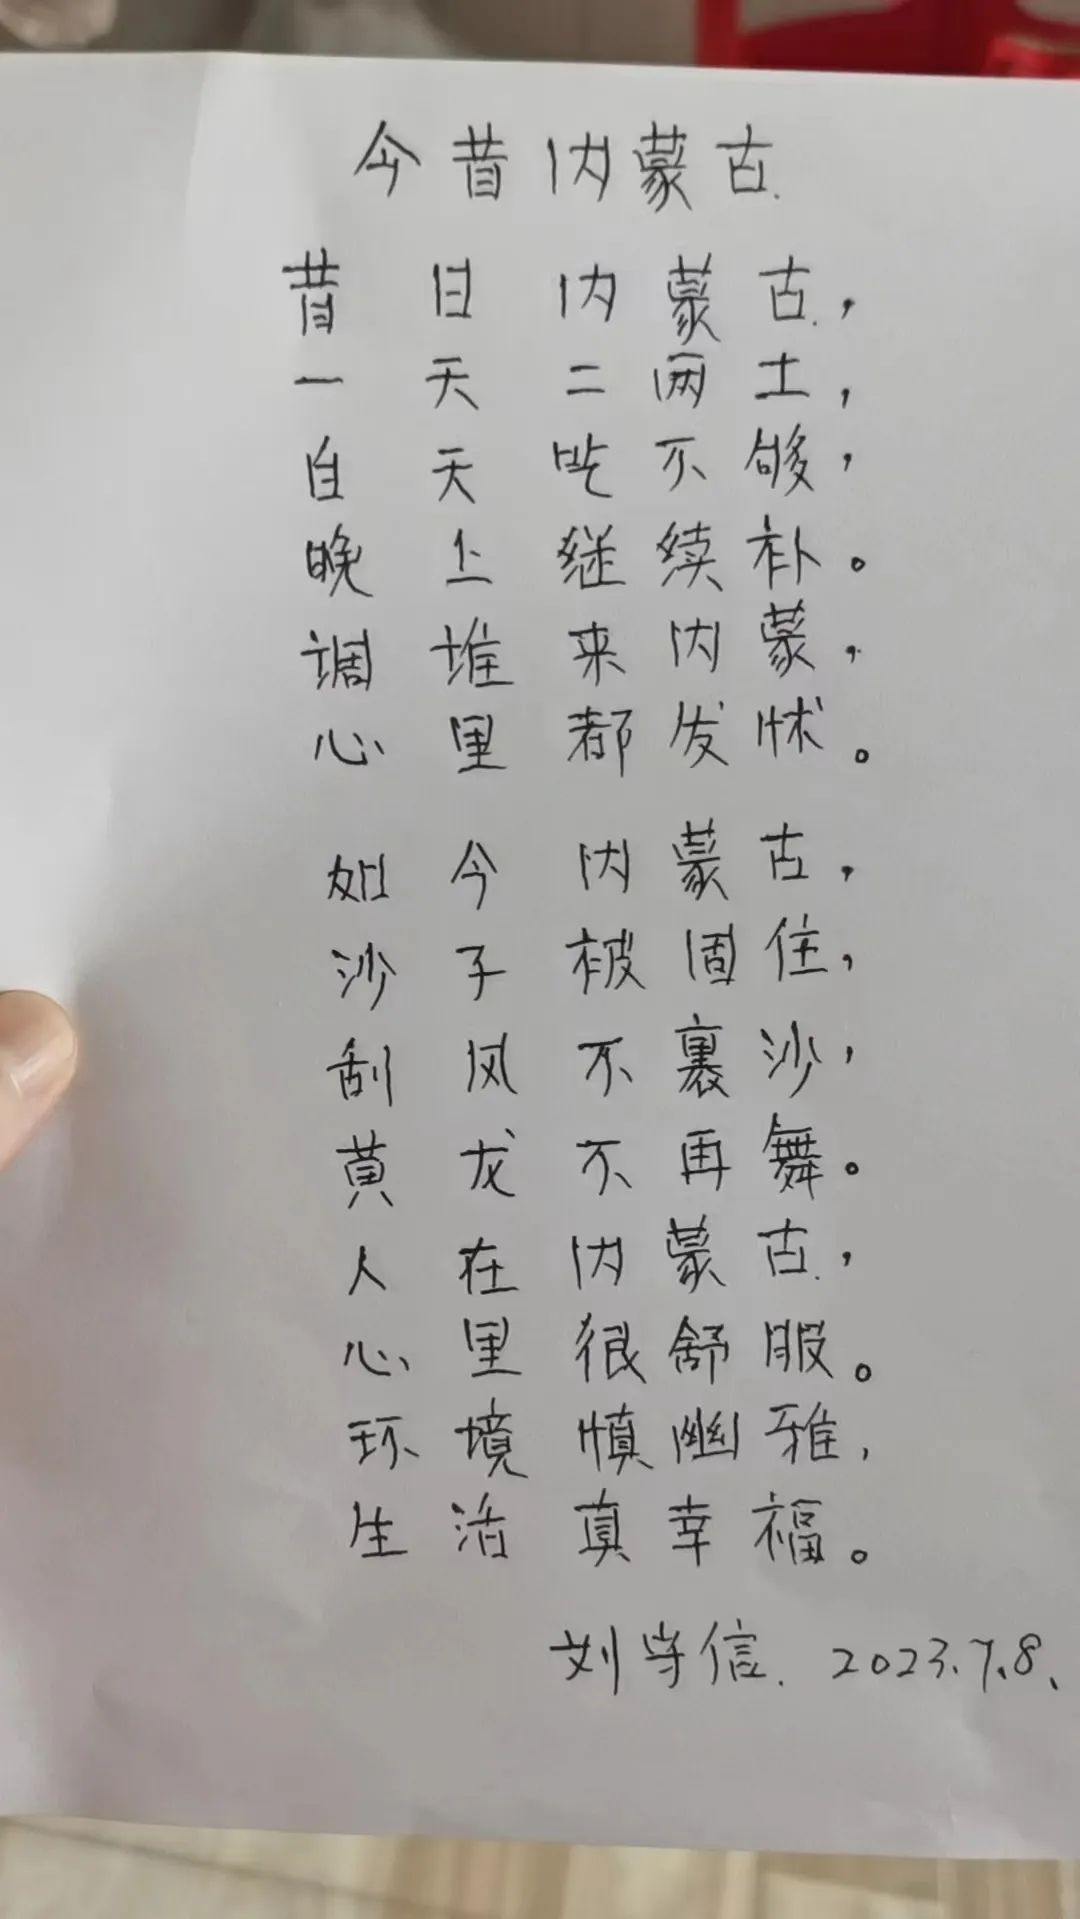 今昔内蒙古
昔日内蒙古，
一天二两土，
白天吃不够，
晚上继续补。
调堆来内蒙，
心里都发怵。
如今内蒙古，
沙子被固住，
刮风不裹沙，
黄龙不再舞。
人在内蒙古，
心里很舒服。
环境慎幽雅，
生活真幸福。
刘守信. 2023.7.8.